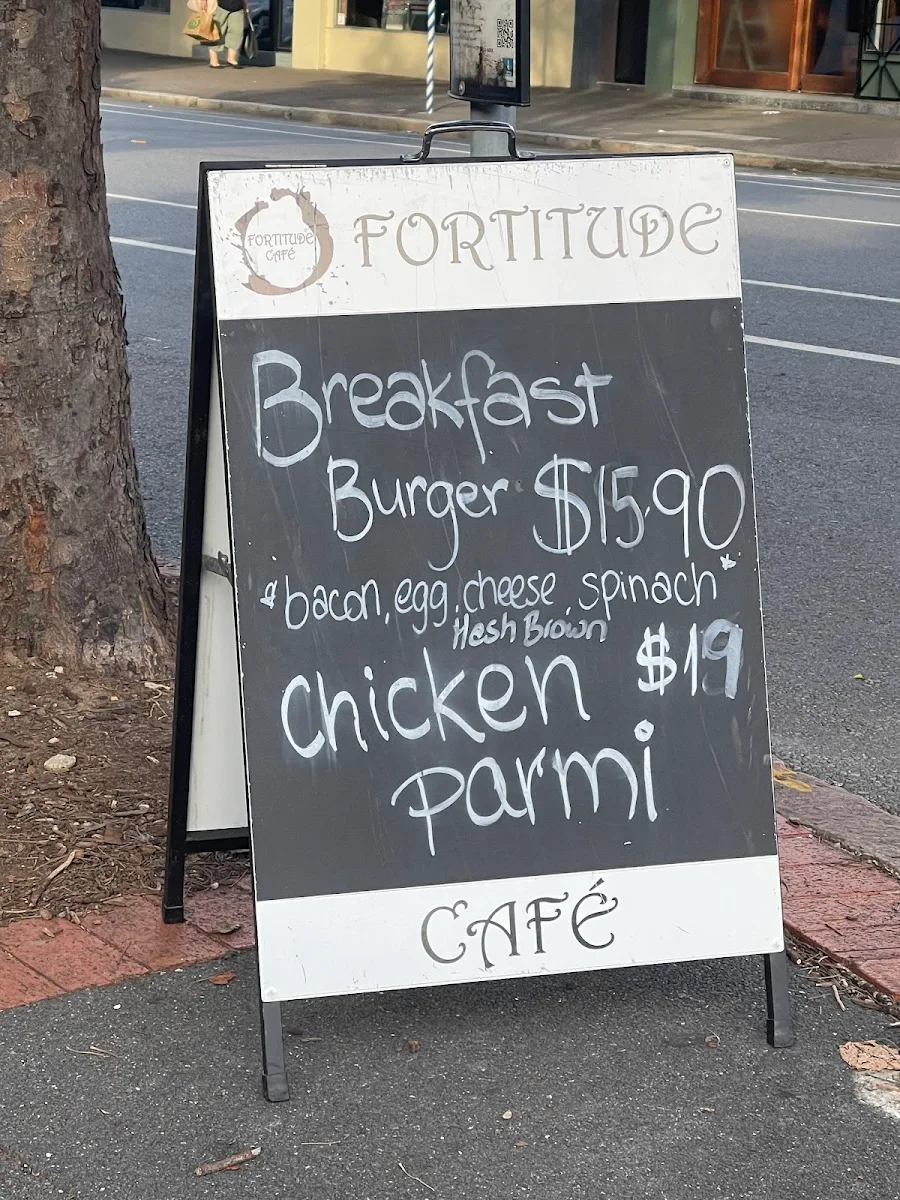 FORTITUDE
CAFÉ
FORTITUDE
Breakfast
Burger $15.90
*bacon, egg, cheese, spinach*
Hash Brown
Chicken $19
parmi
CAFÉ